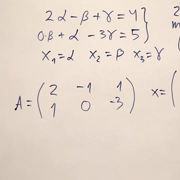 2α - β + γ = 4 }
0·β + α - 3γ = 5 }
x₁ = α x₂ = β x₃ = γ
A = ( 2 -1 1
1 0 -3 ) x = (